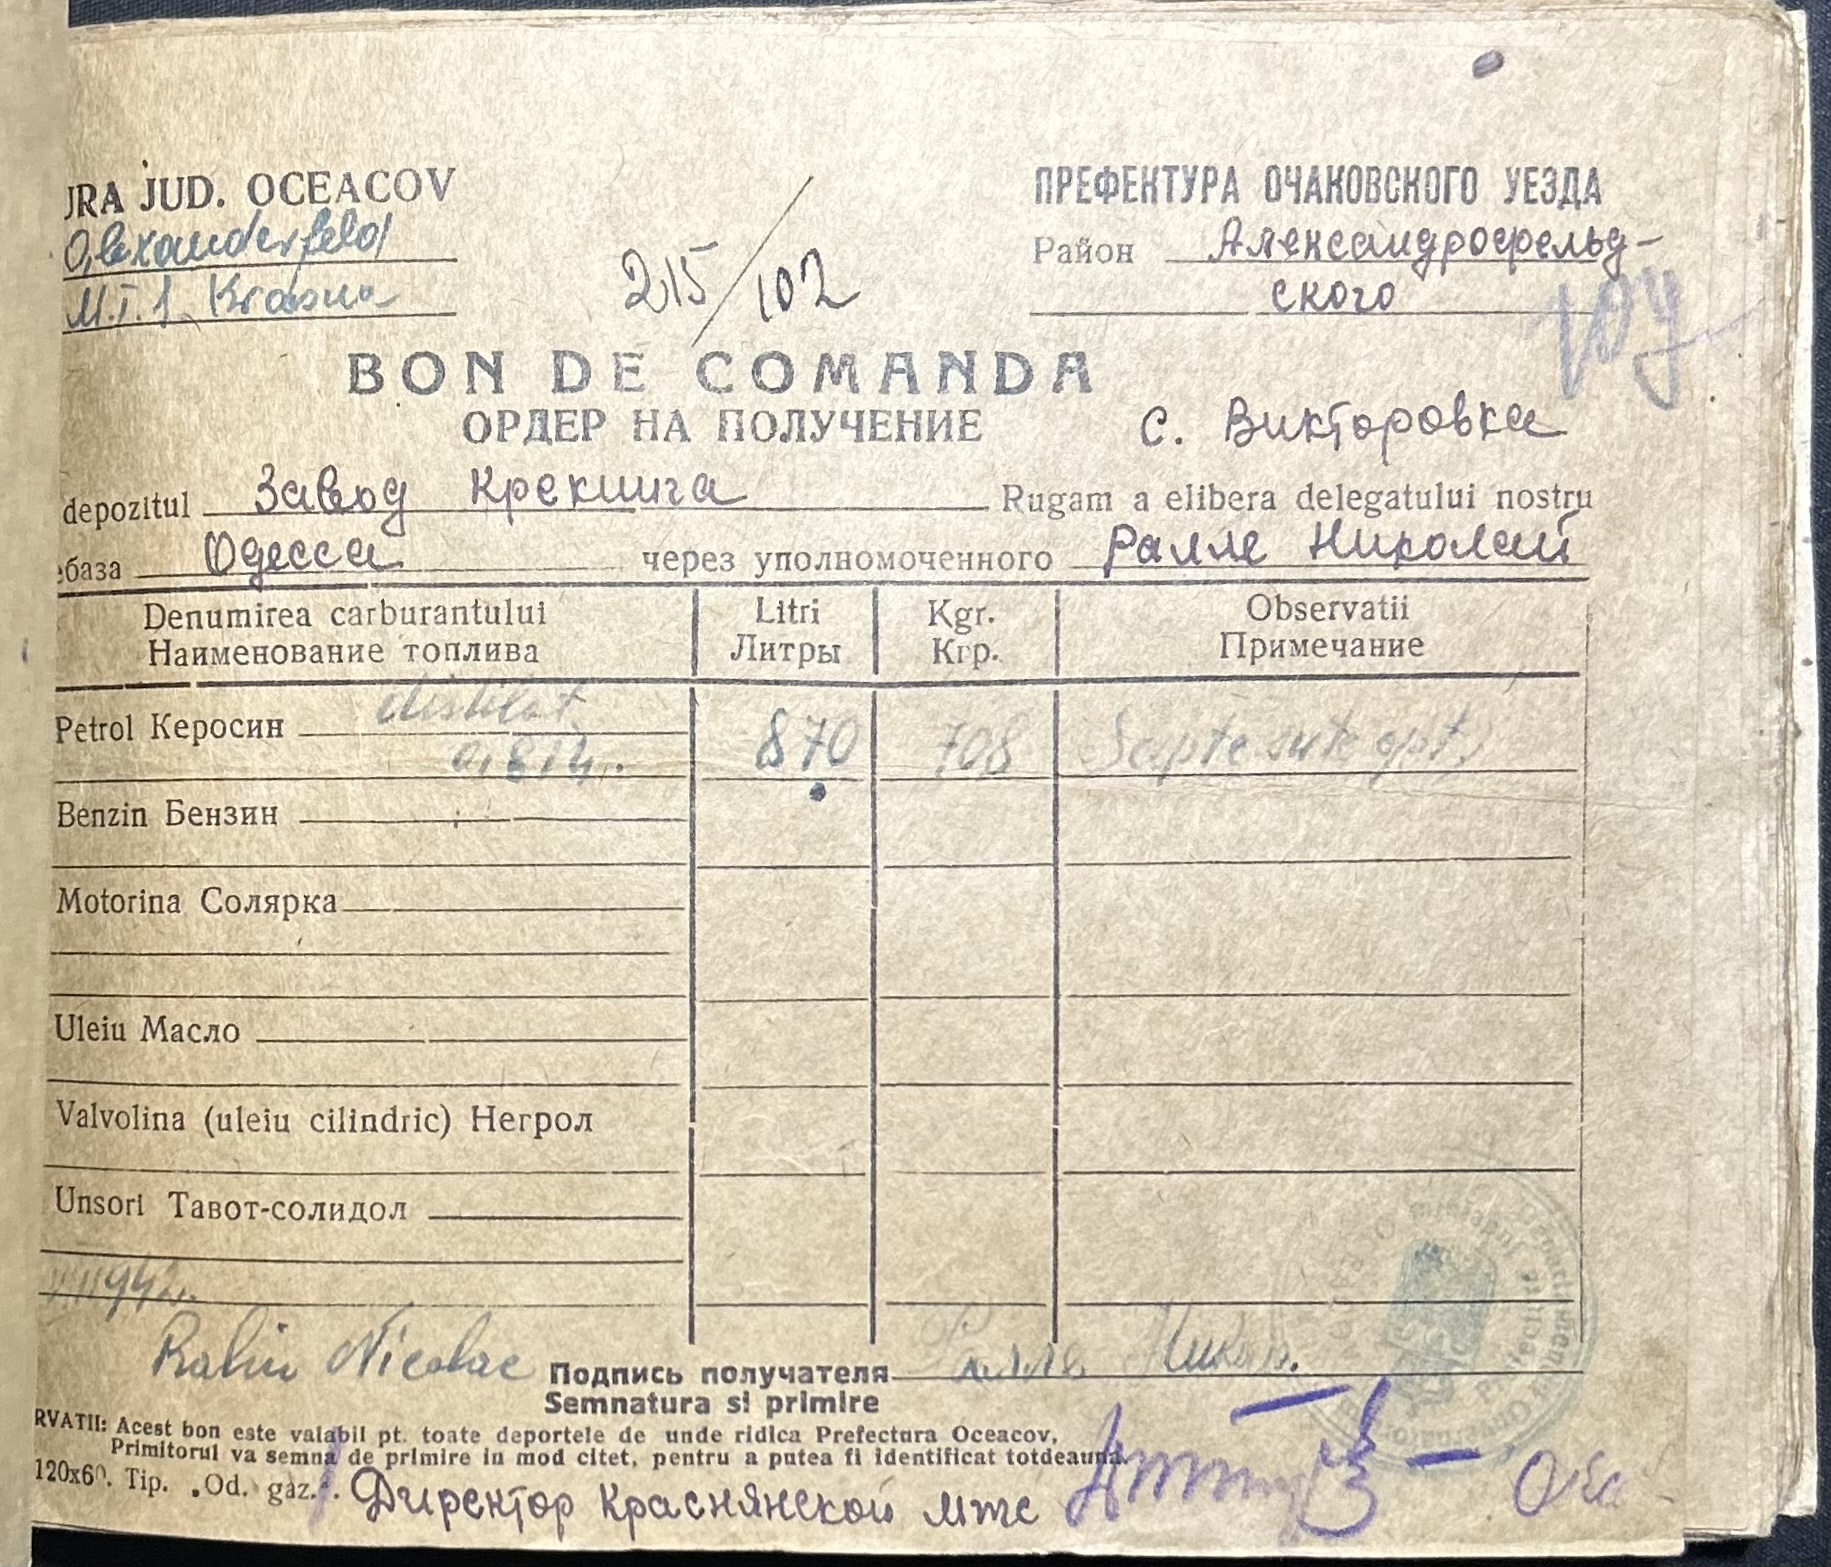 URA JUD. OCEACOV
ПРЕФЕКТУРА ОЧАКОВСКОГО УЕЗДА
Alexanderfeld
Район Александрофельд-
M.T.S. Krasna
215/102
ского
104
BON DE COMANDA
ОРДЕР НА ПОЛУЧЕНИЕ
с. Викторовка
depozitul Завод Крекинга Rugam a elibera delegatului nostru
база Одесса через уполномоченного Ралле Николай
Denumirea carburantului Litri Kgr. Observatii
Наименование топлива Литры Кгр. Примечание
distilat
Petrol Керосин 870 708 Sapte sute opt
0,814
Benzin Бензин
Motorina Солярка
Uleiu Масло
Valvolina (uleiu cilindric) Негрол
Unsori Тавот-солидол
1942
Ralin Nicolae Подпись получателя Ралле Никол.
Semnatura si primire
RVATII: Acest bon este valabil pt. toate deportele de unde ridica Prefectura Oceacov,
Primitorul va semna de primire in mod citet, pentru a putea fi identificat totdeauna.
120x60. Tip. „Od. gaz.".
Директор Краснянской мтс